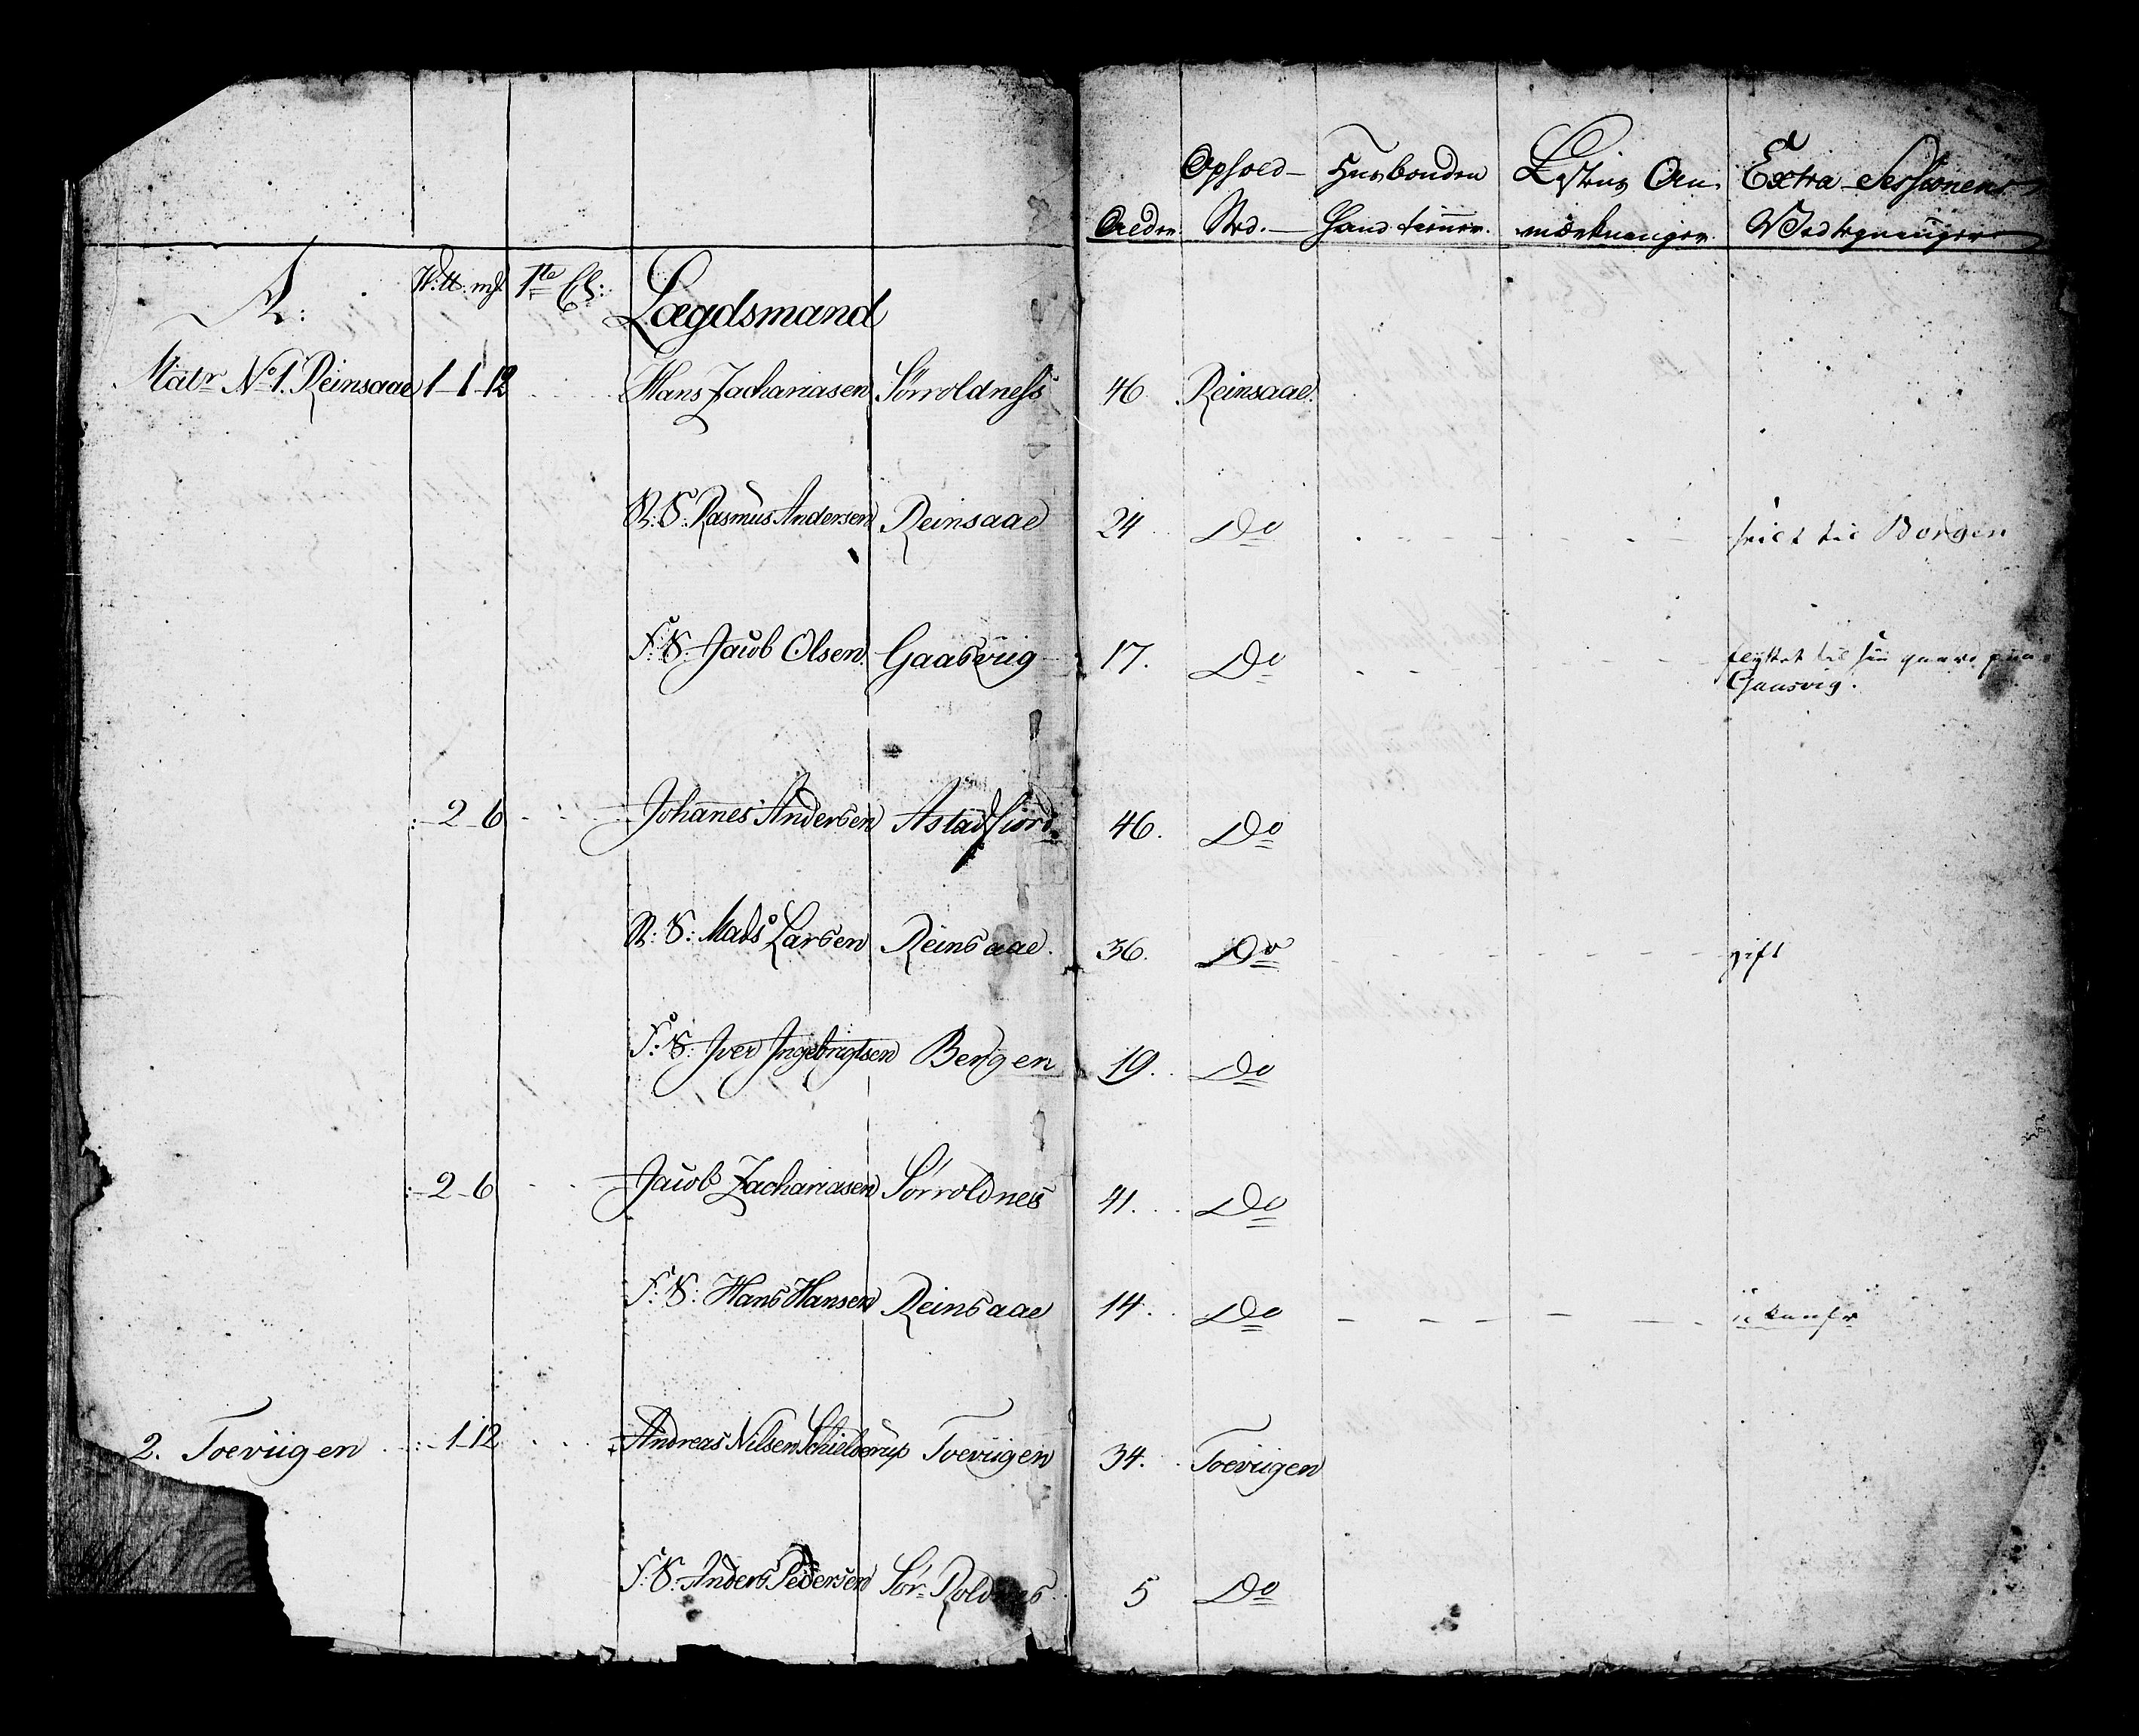 Alder. Ophold- Sted. Husbonden Handteering. Lægdens An- mærkninger. Extra Sessionens Vedtegninger
W: ℔. m[. 1te Cl: Lægdsmand
Matr No 1. Reinsaae 1-1-12 Hans Zachariasen Sörroldness 46 Reinsaae.
R: S: Rasmus Andersen Reinsaae 24 Do til Borgen
F: S: Jacob Olsen Gaasviig 17. Do flyttet til sin gaard paa
Gaasvig.
:-2-6 Johanes Andersen Astadfiord 46. Do
R: S: Mads Larsen Reinsaae. 36. Do gift
F: S: Iver Ingebrigtsen Bergen 19. Do
:-2-6 Jacob Zachariasen Sörroldnes 41. Do
F: S: Hans Hansen Reinsaae 14. Do
2. Toeviigen :-1-12 Andreas Nilsen Schielderup Toeviigen 34. Toeviigen
F: S: Anders Pedersen Sör-Roldnes 5 Do